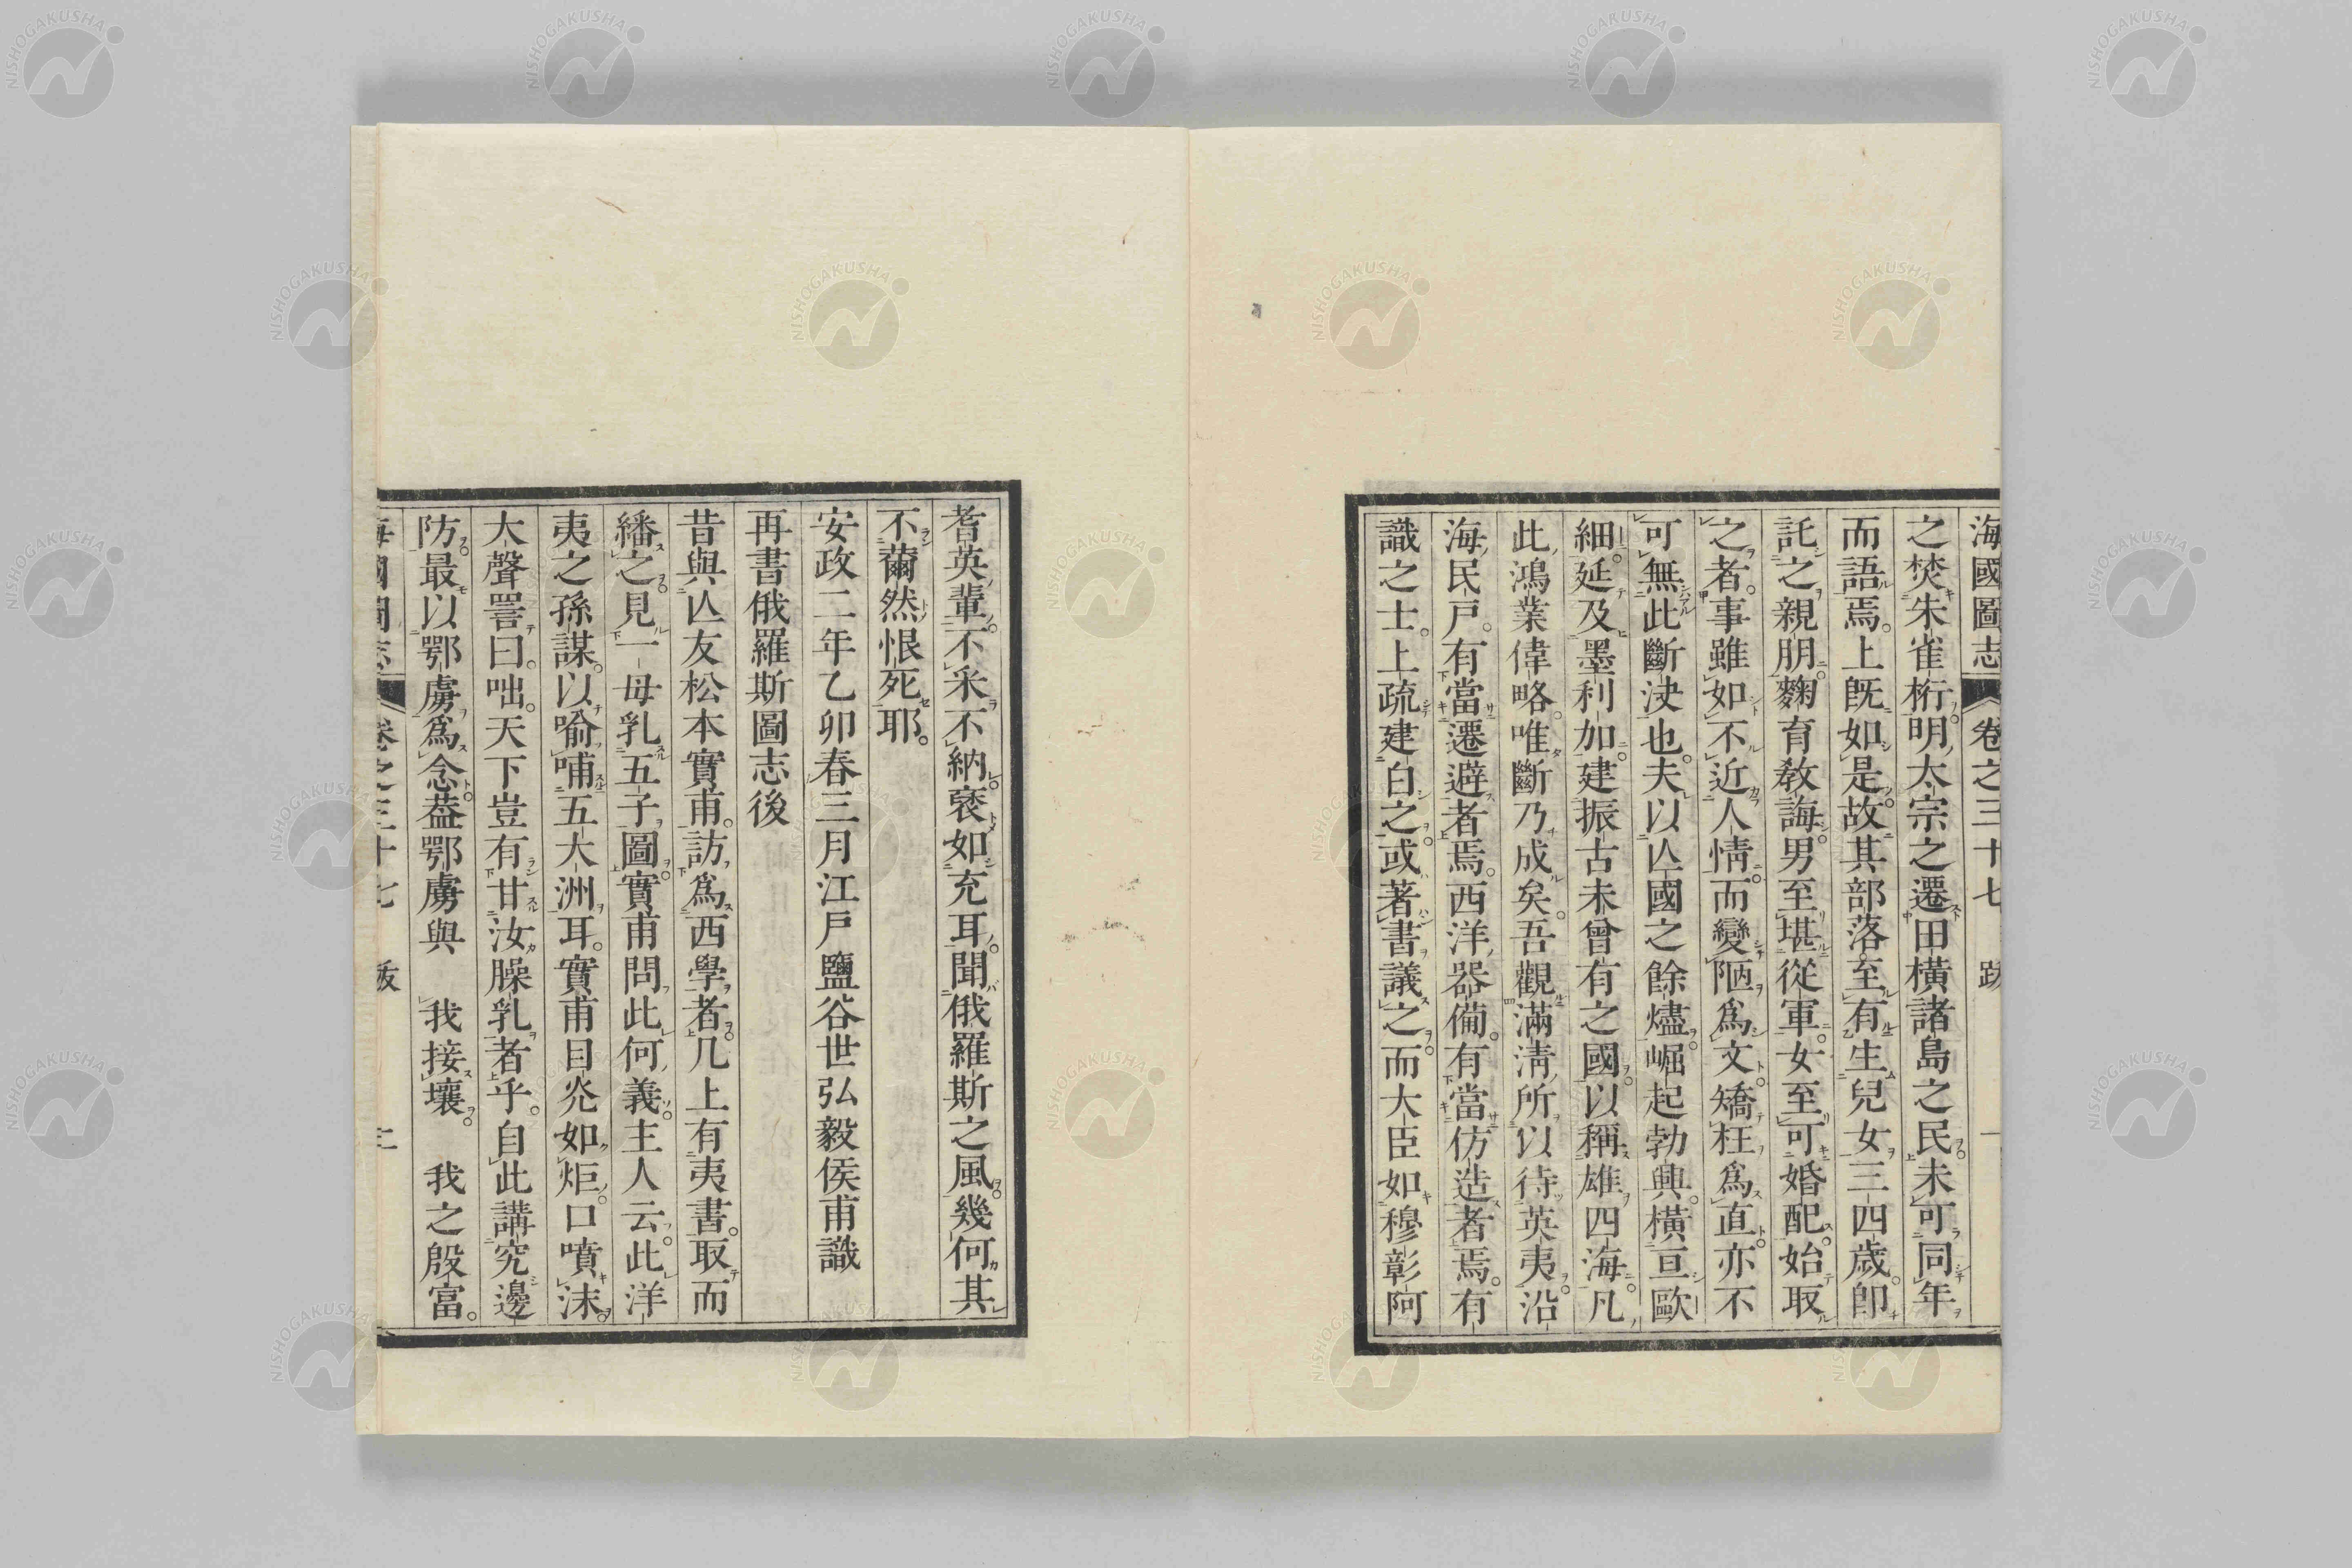 海國圖志 卷之三十七 跋 一
之焚朱雀桁。明太宗之遷田橫諸島之民。未可同年
而語焉。上既如是。故其部落至有生兒女三四歲。卽
託之親朋。麴育教誨。男至堪從軍。女至可婚配。始取
之者。事雖如不近人情。而變陋爲文。矯枉爲直。亦不
可無此斷決也。夫以亾國之餘燼。崛起勃興。橫亘歐
細。延及墨利加。建振古未曾有之國。以稱雄四海。凡
此鴻業偉略。唯斷乃成矣。吾觀滿淸所以待英夷。沿
海民戶。有當遷避者焉。西洋器備。有當仿造者焉。有
識之士。上疏建白之。或著書議之。而大臣如穆彰阿
耆英輩。不釆不納。褎如充耳。聞俄羅斯之風。幾何其
不薾然恨死耶。
安政二年乙卯春三月江戶鹽谷世弘毅侯甫識
再書俄羅斯圖志後
昔與亾友松本實甫。訪爲西學者。几上有夷書。取而
繙之。見一母乳五子圖。實甫問此何義。主人云。此洋
夷之孫謀。以喻哺五大洲耳。實甫目炎如炬。口噴沫。
大聲詈曰。咄。天下豈有甘汝臊乳者乎。自此講究邊
防。最以鄂虜爲念。葢鄂虜與 我接壤。 我之殷富。
海國圖志 卷之三十七 跋 二